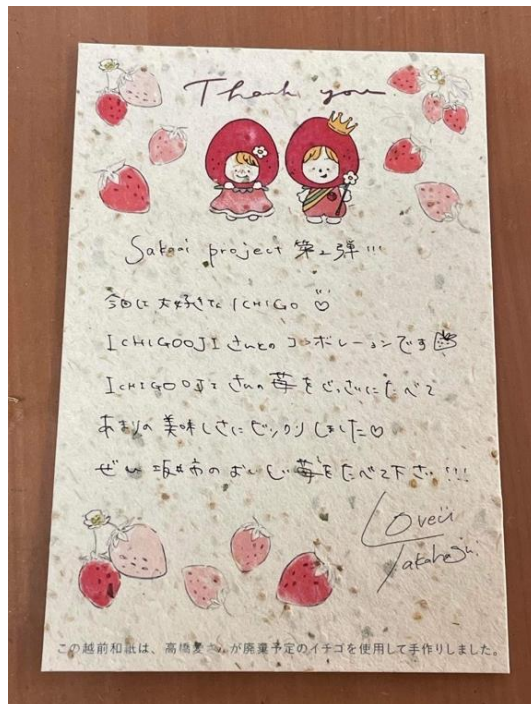 Thank you
Sakaai project 第2弾!!!
今回は大好きな ICHIGO ♡
ICHIGOOJI さんとの コラボレーションです
ICHIGOOJI さんの 苺を じっさいに たべて
あまりの 美味しさに ビックリ しました♡
ぜひ 坂井市の おいしい 苺を たべて下さい!!!
Loveii
Takahashi.
この越前和紙は、高橋愛さんが廃棄予定のイチゴを使用して手作りしました。